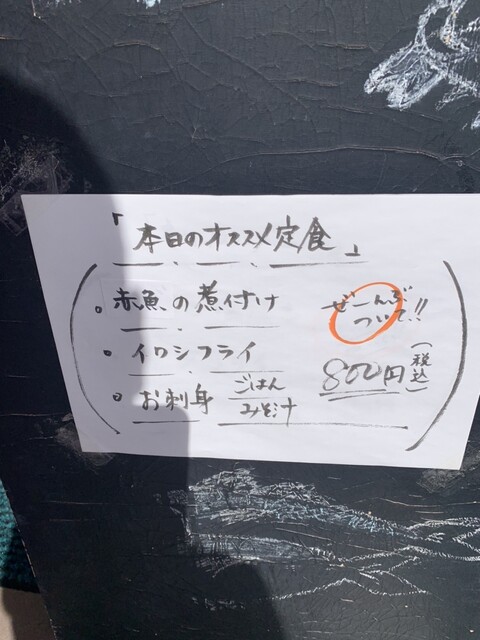 「本日のオススメ定食」
。赤魚の煮付け
。イワシフライ
。お刺身
ごはん
みそ汁
ぜーんぶ
ついて!!
800円(税込)